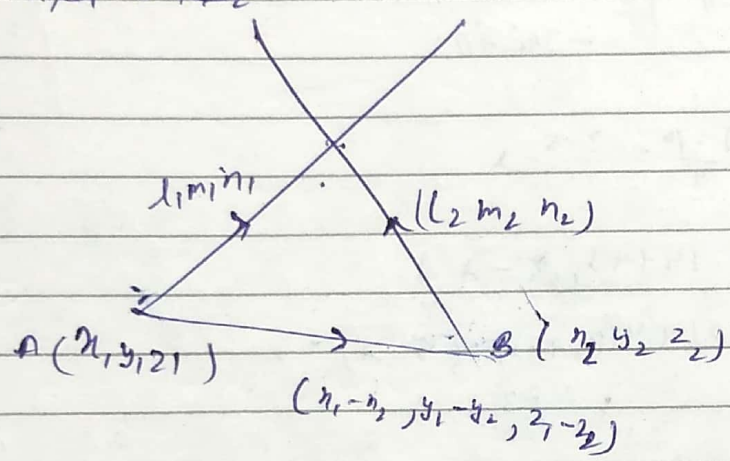 l₁m₁n₁
(l₂ m₂ n₂)
A (x₁y₁z1)
B (x₂ y₂ z₂)
(x₁-x₂, y₁-y₂, z₁-z₂)